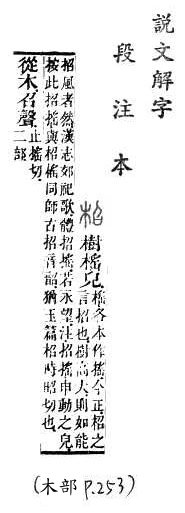 說文解字
段注本
柖 樹榣皃 榣各本作搖今正柖之
言招也樹高大則如能
招風者然漢志郊祀歌體招搖若永望注招搖申動之皃
按此招搖與柖榣同師古招音韶猶玉篇柖時昭切也
從木召聲 止搖切
二部
(木部 P.253)